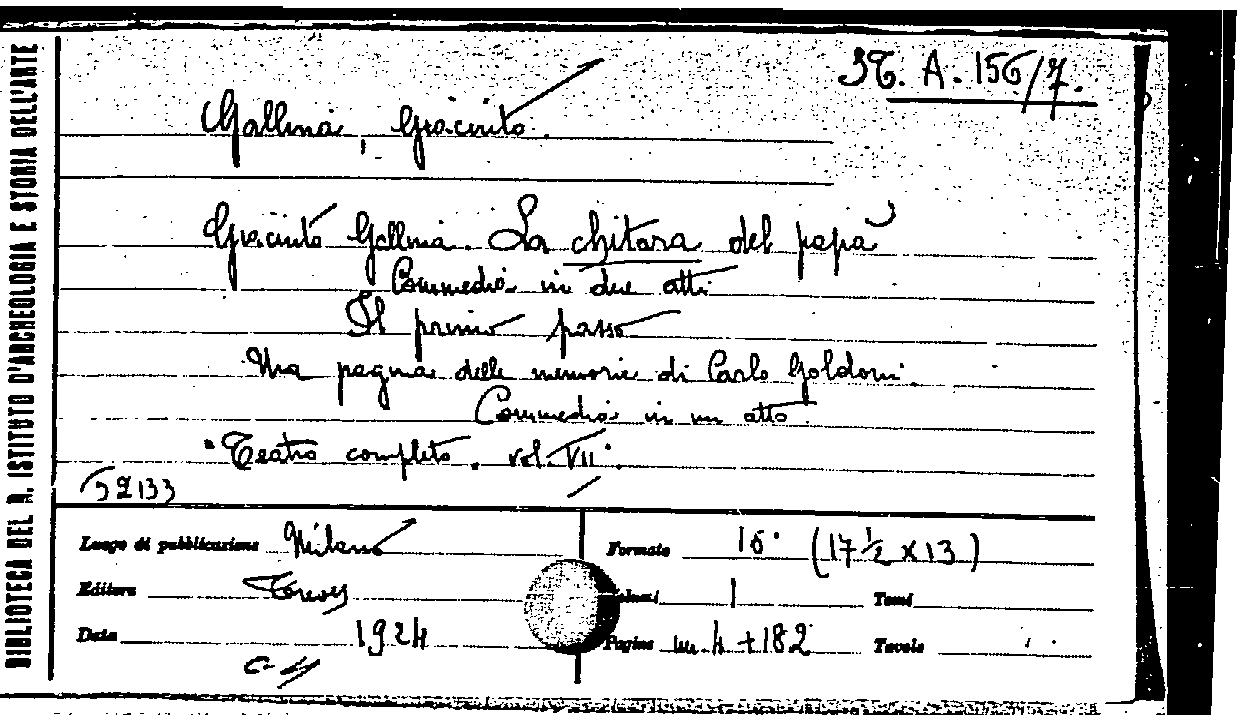 BIBLIOTECA DEL R. ISTITUTO D'ARCHEOLOGIA E STORIA DELL'ARTE
ST. A. 156/7.
Gallina, Giacinto.
Giacinto Gallina. La chitara del papà
Commedia in due atti
Il primo passo
Una pagina delle memorie di Carlo Goldoni.
Commedia in un atto
"Teatro completo. vol. VII".
52133
Luogo di pubblicazione Milano
Formato 16° (17 ½ x 13)
Editore Treves
Volumi 1 Tomi
Data 1924
Pagine 4 + 182 Tavole